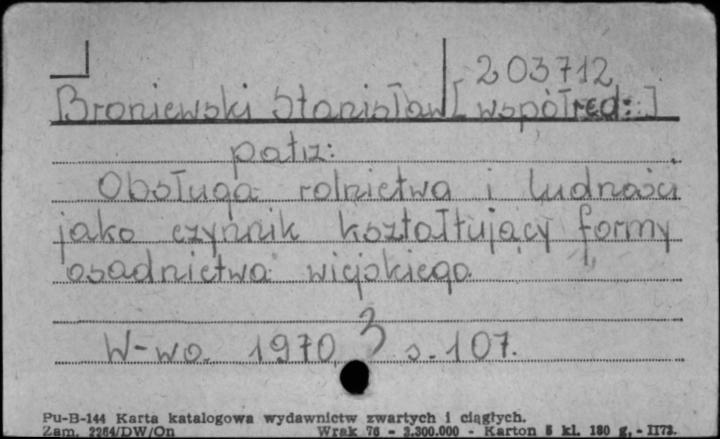 203712
Broniewski Stanisław [współred:]
patrz:
Obsługa rolnictwa i ludności
jako czynnik kształtujący formy
osadnictwa wiejskiego.
W-wa. 1970 3 s. 107.
Pu-B-144 Karta katalogowa wydawnictw zwartych i ciągłych.
Zam. 2264/DW/On Wrak 76 - 3.300.000 - Karton 5 kl. 180 g. - II73.